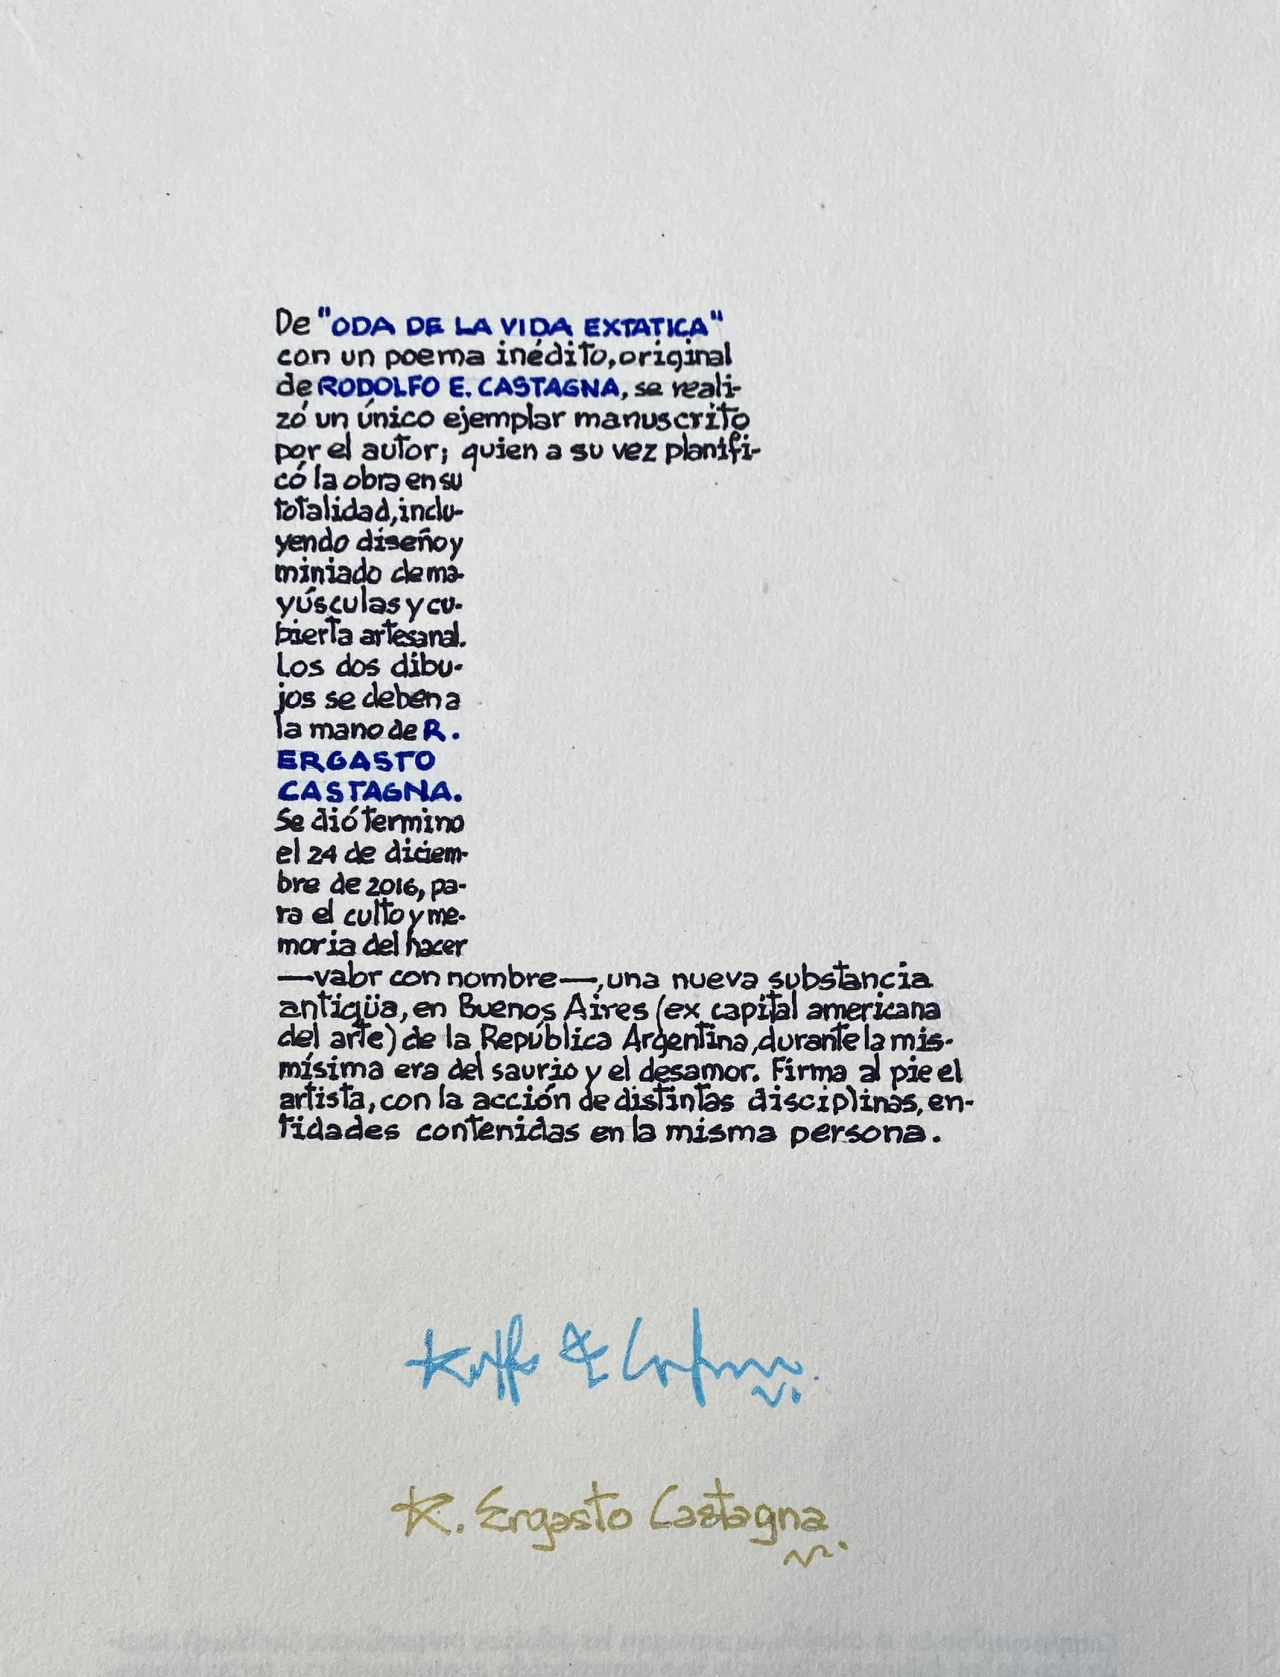 De "ODA DE LA VIDA EXTATICA"
con un poema inédito, original
de RODOLFO E. CASTAGNA, se reali-
zó un único ejemplar manuscrito
por el autor; quien a su vez planifi-
có la obra en su
totalidad, inclu-
yendo diseño y
miniado de ma-
yúsculas y cu-
bierta artesanal.
Los dos dibu-
jos se deben a
la mano de R.
ERGASTO
CASTAGNA.
Se dió termino
el 24 de diciem-
bre de 2016, pa-
ra el culto y me-
moria del hacer
—valor con nombre—, una nueva substancia
antigüa, en Buenos Aires (ex capital americana
del arte) de la República Argentina, durante la mis-
mísima era del saurio y el desamor. Firma al pie el
artista, con la acción de distintas disciplinas, en-
tidades contenidas en la misma persona.
R. Ergasto Castagna